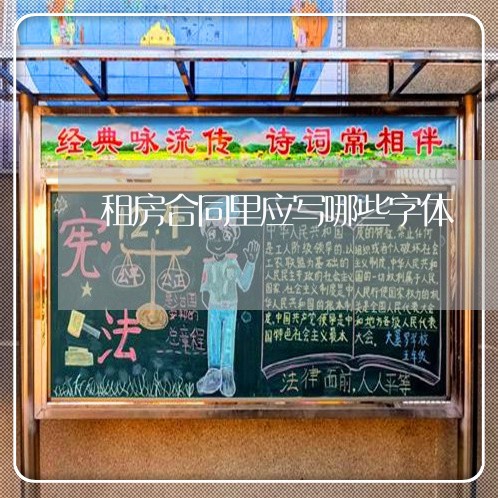 经典咏流传 诗词常相伴
租房合同里应写哪些字体
宪
法
12.4
公平
公正
总章程
中华人民共和国
是工人阶级领导的,以
工农联盟为基础的
人民民主专政的社会主义
国家。社会主义制度是中
华人民共和国的根本制
度。中国共产党领导是中
国特色社会主义最本
质的特征。禁止任何
组织或者个人破坏社会
主义制度。中华人民共和
国的一切权利属于人民。
人民行使国家权力的机
关是全国人民代表大会
和地方各级人民代表
大会。
五年级
法律面前,人人平等